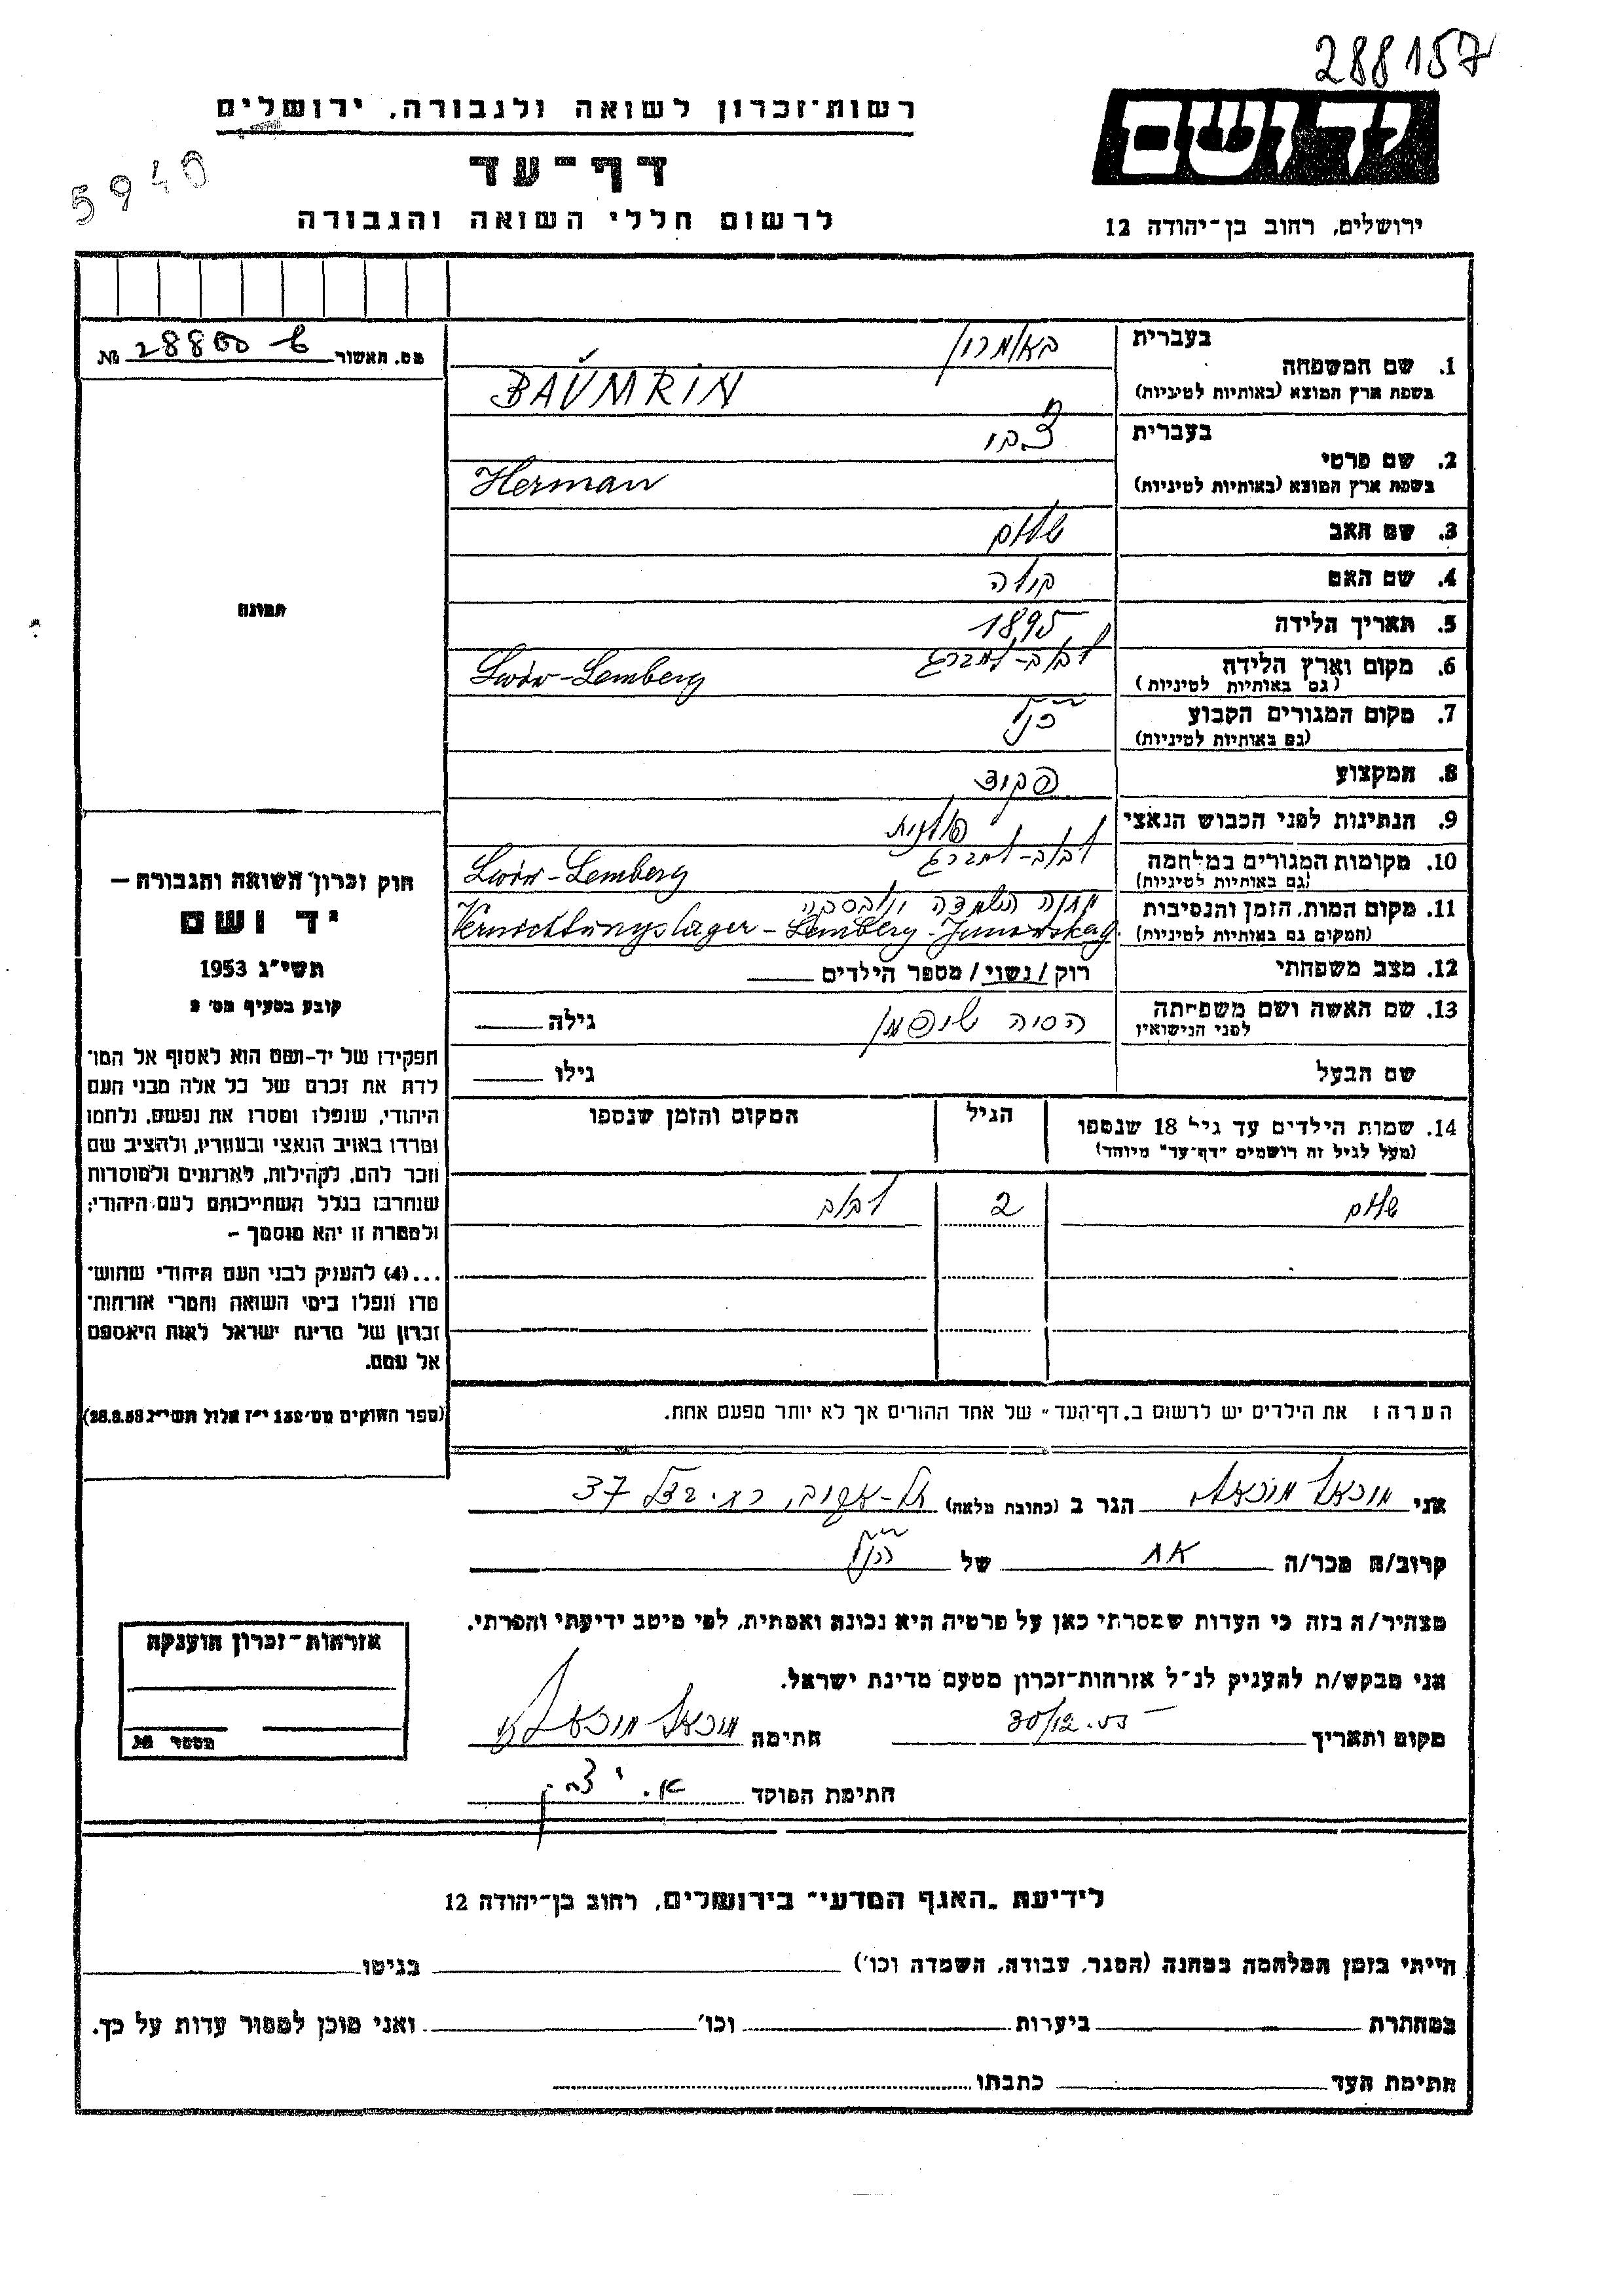 288157
יד ושם
ירושלים, רחוב בן-יהודה 12
רשות-זכרון לשואה ולגבורה, ירושלים
דף-עד
לרשום חללי השואה והגבורה
5940
מס. האשור 28800 №
תמונה
חוק זכרון השואה והגבורה —
יד ושם
תשי"ג 1953
קובע בסעיף מס' 2
תפקידו של יד-ושם הוא לאסוף אל המו־
לדת את זכרם של כל אלה מבני העם
היהודי, שנפלו ומסרו את נפשם, נלחמו
ומרדו באויב הנאצי ובעוזריו, ולהציב שם
וזכר להם, לקהילות, לארגונים ולמוסדות
שנחרבו בגלל השתייכותם לעם היהודי;
ולמטרה זו יהא מוסמך –
...(4) להעניק לבני העם היהודי שהוש־
מדו ונפלו בימי השואה והמרי אזרחות־
זכרון של מדינת ישראל לאות היאספם
אל עמם.
(ספר החוקים מס' 132 י"ז אלול תשי"ג 28.8.53)
בעברית באומרין
1. שם המשפחה
בשפת ארץ המוצא (באותיות לטיניות) BAUMRIN
בעברית צבי
2. שם פרטי
בשפת ארץ המוצא (באותיות לטיניות) Herman
3. שם האב שלום
4. שם האם
5. תאריך הלידה 1895
6. מקום וארץ הלידה לבוב-למברג
(גם באותיות לטיניות) Lwów-Lemberg
7. מקום המגורים הקבוע כנ"ל
(גם באותיות לטיניות)
8. המקצוע פקיד
9. הנתינות לפני הכבוש הנאצי פולנית
10. מקומות המגורים במלחמה לבוב-למברג
(גם באותיות לטיניות) Lwów-Lemberg
11. מקום המות, הזמן והנסיבות מחנה השמדה
(המקום גם באותיות לטיניות) Vernichtungslager-Lemberg-Janowskag.
12. מצב משפחתי רוק/נשוי/מספר הילדים
13. שם האשה ושם משפחתה הסיה שיפמן גילה
לפני הנישואין
שם הבעל גילו
14. שמות הילדים עד גיל 18 שנספו הגיל המקום והזמן שנספו
(מעל לגיל זה רושמים "דף-עד" מיוחד)
שלום 2 לבוב
הערה: את הילדים יש לרשום ב"דף-העד" של אחד ההורים אך לא יותר מפעם אחת.
אני הגר ב (כתובת מלאה) תל-אביב, 37
קרוב/ה מכר/ה אח של הנ"ל
מצהיר/ה בזה כי העדות שמסרתי כאן על פרטיה היא נכונה ואמתית, לפי מיטב ידיעתי והכרתי.
אני מבקש/ת להעניק לנ"ל אזרחות-זכרון מטעם מדינת ישראל.
מקום ותאריך 30/12.55 חתימה
חתימת הפוקד
אזרחות-זכרון הוענקה
מספר №
לידיעת "האגף המדעי" בירושלים, רחוב בן-יהודה 12
הייתי בזמן המלחמה במחנה (הסגר, עבודה, השמדה וכו') בגיטו
במחתרת ביערות וכו' ואני מוכן למסור עדות על כך.
חתימת העד כתבתו